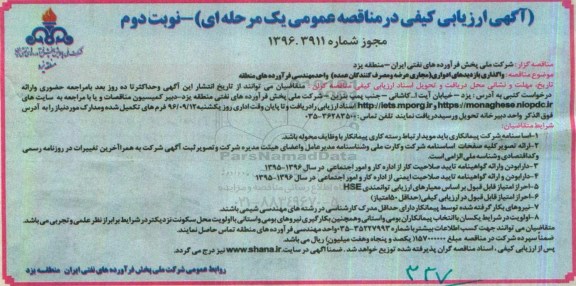 (آگهی ارزیابی کیفی در مناقصه عمومی یک مرحله ای) - نوبت دوم
مجوز شماره ۱۳۹۶.۳۹۱۱
شرکت ملی پخش فرآورده های نفتی ایران
منطقه یزد
مناقصه گزار: شرکت ملی پخش فرآورده های نفتی ایران - منطقه یزد
موضوع مناقصه: واگذاری بازدیدهای ادواری (مجاری عرضه و مصرف کنندگان عمده) واحد مهندسی فرآورده های منطقه
مهلت و نشانی محل دریافت و تحویل اسناد ارزیابی کیفی مناقصه گران: متقاضیان می توانند از تاریخ انتشار این آگهی وحداکثر تا ده روز بعد بامراجعه حضوری وارائه
درخواست کتبی به آدرس: یزد - خیابان آیت ا... کاشانی - شرکت ملی پخش فرآورده های نفتی منطقه یزد - دبیر کمیسیون مناقصات و یا با مراجعه به سایت های
http://iets.mporg.ir و https://monaghese.niopdc.ir اسناد ارزیابی را دریافت و تا پایان وقت اداری روز یکشنبه ۹۶/۰۹/۱۲ فرم های تکمیل شده ومدارک موردنیاز را به آدرس
فوق الذکر واحد دبیرخانه تحویل ورسید دریافت نمایند. تلفن تماس: ۰۳۵-۳۶۲۴۸۳۵۰
شرایط متقاضیان:
۱-اساسنامه شرکت پیمانکاری باید موید ارتباط رسته کاری پیمانکار با وظایف محوله باشد.
۲-ارائه تصویر کلیه صفحات اساسنامه شرکت وکارت ملی وشناسنامه مدیرعامل واعضای هیئت مدیره شرکت وتصویر ثبت آگهی شرکت به همراه آخرین تغییرات در روزنامه رسمی
وکداقتصادی وشناسه ملی الزامی است.
۳-دارا بودن و ارائه گواهینامه تایید صلاحیت کار از اداره کار و امور اجتماعی در سال ۱۳۹۶-۱۳۹۵
۴-دارا بودن و ارائه گواهینامه تایید صلاحیت ایمنی از اداره کار و امور اجتماعی در سال ۱۳۹۶-۱۳۹۵
۵-احراز امتیاز قابل قبول بر اساس معیارهای ارزیابی توانمندی HSE
۶-احراز امتیاز قابل قبول در ارزیابی کیفی (حداقل ۵۰ امتیاز)
۷-نیروهای بکار گرفته شده توسط پیمانکار دارای حداقل مدرک کارشناسی در رشته های مهندسی شیمی باشند.
۸-اولویت در شرایط یکسان با انتخاب پیمانکاران بومی واستانی وهمچنین بکارگیری نیروهای بومی واستانی با اولویت محل سکونت نزدیکتر در شرایط برابر از نظر علمی و تجربی می باشد.
متقاضیان می توانند جهت کسب اطلاعات بیشتر با شماره ۳۵۲۲۷۹۹۳-۰۳۵ واحد مهندسی فرآورده های منطقه تماس حاصل نمایند.
ضمنا سپرده شرکت در مناقصه مبلغ ۱۵۷۰۰۰۰۰۰ (یکصد و پنجاه وهفت میلیون) ریال می باشد.
پس از ارزیابی کیفی، اسناد مناقصه گران پذیرفته شده توزیع خواهد شد. ضمنا آگهی در سایت www.shana.ir نیز درج می گردد.
روابط عمومی شرکت ملی پخش فرآورده های نفتی ایران منطقه یزد
۳۳۷